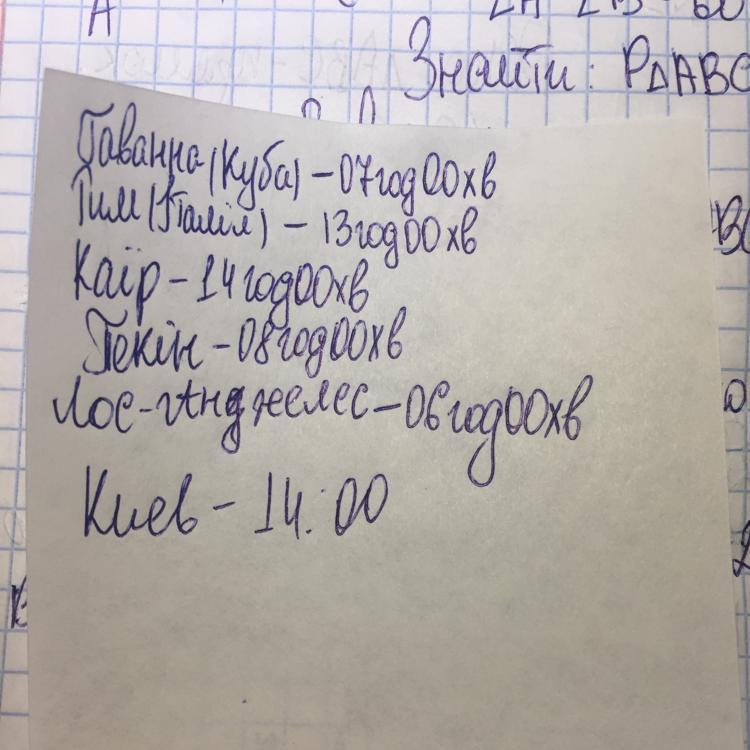 А
Знайти: РΔАВС
Гаванна (Куба) – 07год00хв
Рим (Італія) – 13год00хв
Каїр – 14год00хв
Пекін – 08год00хв
Лос-Анджелес – 06год00хв
Киев – 14:00